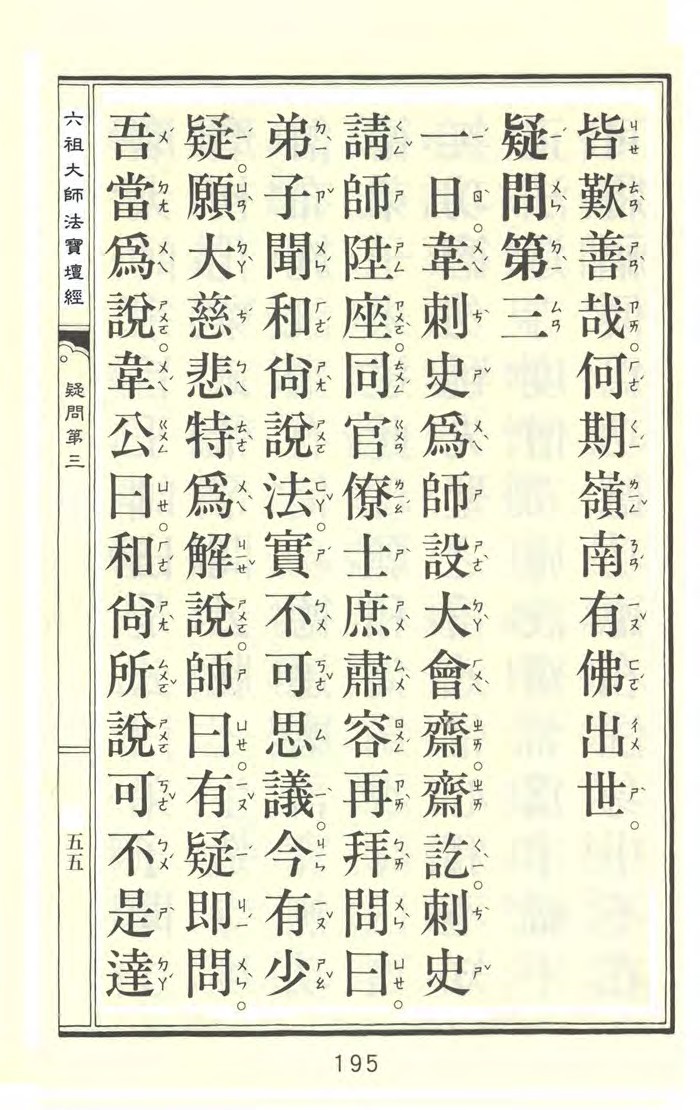 皆歎善哉。何期嶺南有佛出世。
疑問第三
一日。韋刺史爲師設大會齋。齋訖。刺史
請師陞座。同官僚士庶肅容再拜問曰。
弟子聞和尙說法。實不可思議。今有少
疑。願大慈悲特爲解說。師曰。有疑即問。
吾當爲說。韋公曰。和尙所說。可不是達
六祖大師法寶壇經
疑問第三
五五
195